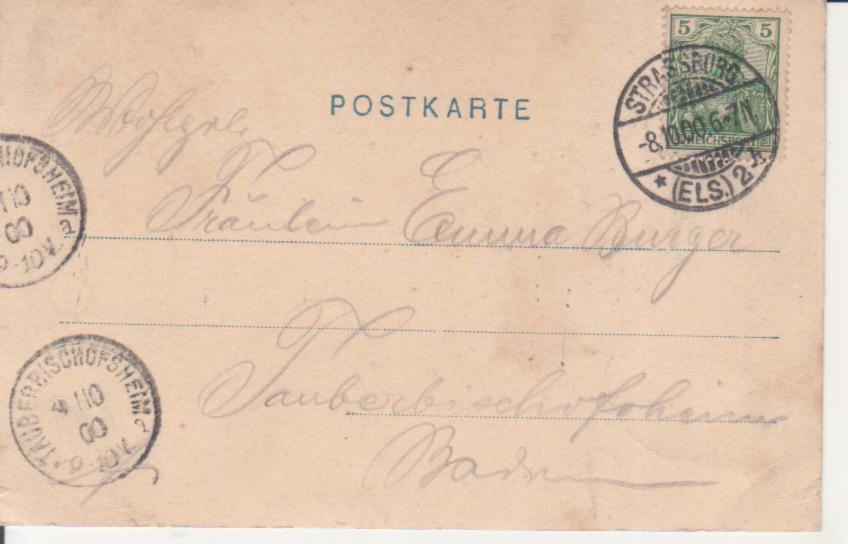 5 5
POSTKARTE
STRASSBURG
-8.10.00.6-7N.
REICHSPOST
* (ELS.) 2 *
Wohlgeb.
Fräulein Emma Burger
Tauberbischofsheim
Baden
HOFSHEIM
110
00
9-10V.
TAUBERBISCHOFSHEIM
110
00
9-10V.